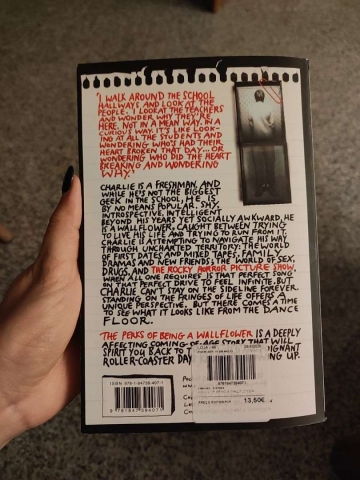 "I WALK AROUND THE SCHOOL
HALLWAYS AND LOOK AT THE
PEOPLE. I LOOK AT THE TEACHERS
AND WONDER WHY THEY'RE
HERE. NOT IN A MEAN WAY. IN A
CURIOUS WAY. IT'S LIKE LOOK-
ING AT ALL THE STUDENTS AND
WONDERING WHO'S HAD THEIR
HEART BROKEN THAT DAY... OR
WONDERING WHO DID THE HEART
BREAKING AND WONDERING
WHY."
CHARLIE IS A FRESHMAN. AND
WHILE HE'S NOT THE BIGGEST
GEEK IN THE SCHOOL, HE IS
BY NO MEANS POPULAR. SHY,
INTROSPECTIVE, INTELLIGENT
BEYOND HIS YEARS YET SOCIALLY AWKWARD, HE
IS A WALLFLOWER, CAUGHT BETWEEN TRYING
TO LIVE HIS LIFE AND TRYING TO RUN FROM IT.
CHARLIE IS ATTEMPTING TO NAVIGATE HIS WAY
THROUGH UNCHARTED TERRITORY: THE WORLD
OF FIRST DATES AND MIXED TAPES, FAMILY
DRAMAS AND NEW FRIENDS; THE WORLD OF SEX,
DRUGS, AND THE ROCKY HORROR PICTURE SHOW,
WHEN ALL ONE REQUIRES IS THAT PERFECT SONG
ON THAT PERFECT DRIVE TO FEEL INFINITE. BUT
CHARLIE CAN'T STAY ON THE SIDELINE FOREVER.
STANDING ON THE FRINGES OF LIFE OFFERS A
UNIQUE PERSPECTIVE. BUT THERE COMES A TIME
TO SEE WHAT IT LOOKS LIKE FROM THE DANCE
FLOOR.
THE PERKS OF BEING A WALLFLOWER IS A DEEPLY
AFFECTING COMING-OF-AGE STORY THAT WILL
SPIRIT YOU BACK TO
ROLLER-COASTER DAY
ING UP.
ISBN 978-1-84739-407-1
9 781847 394071
13,50€